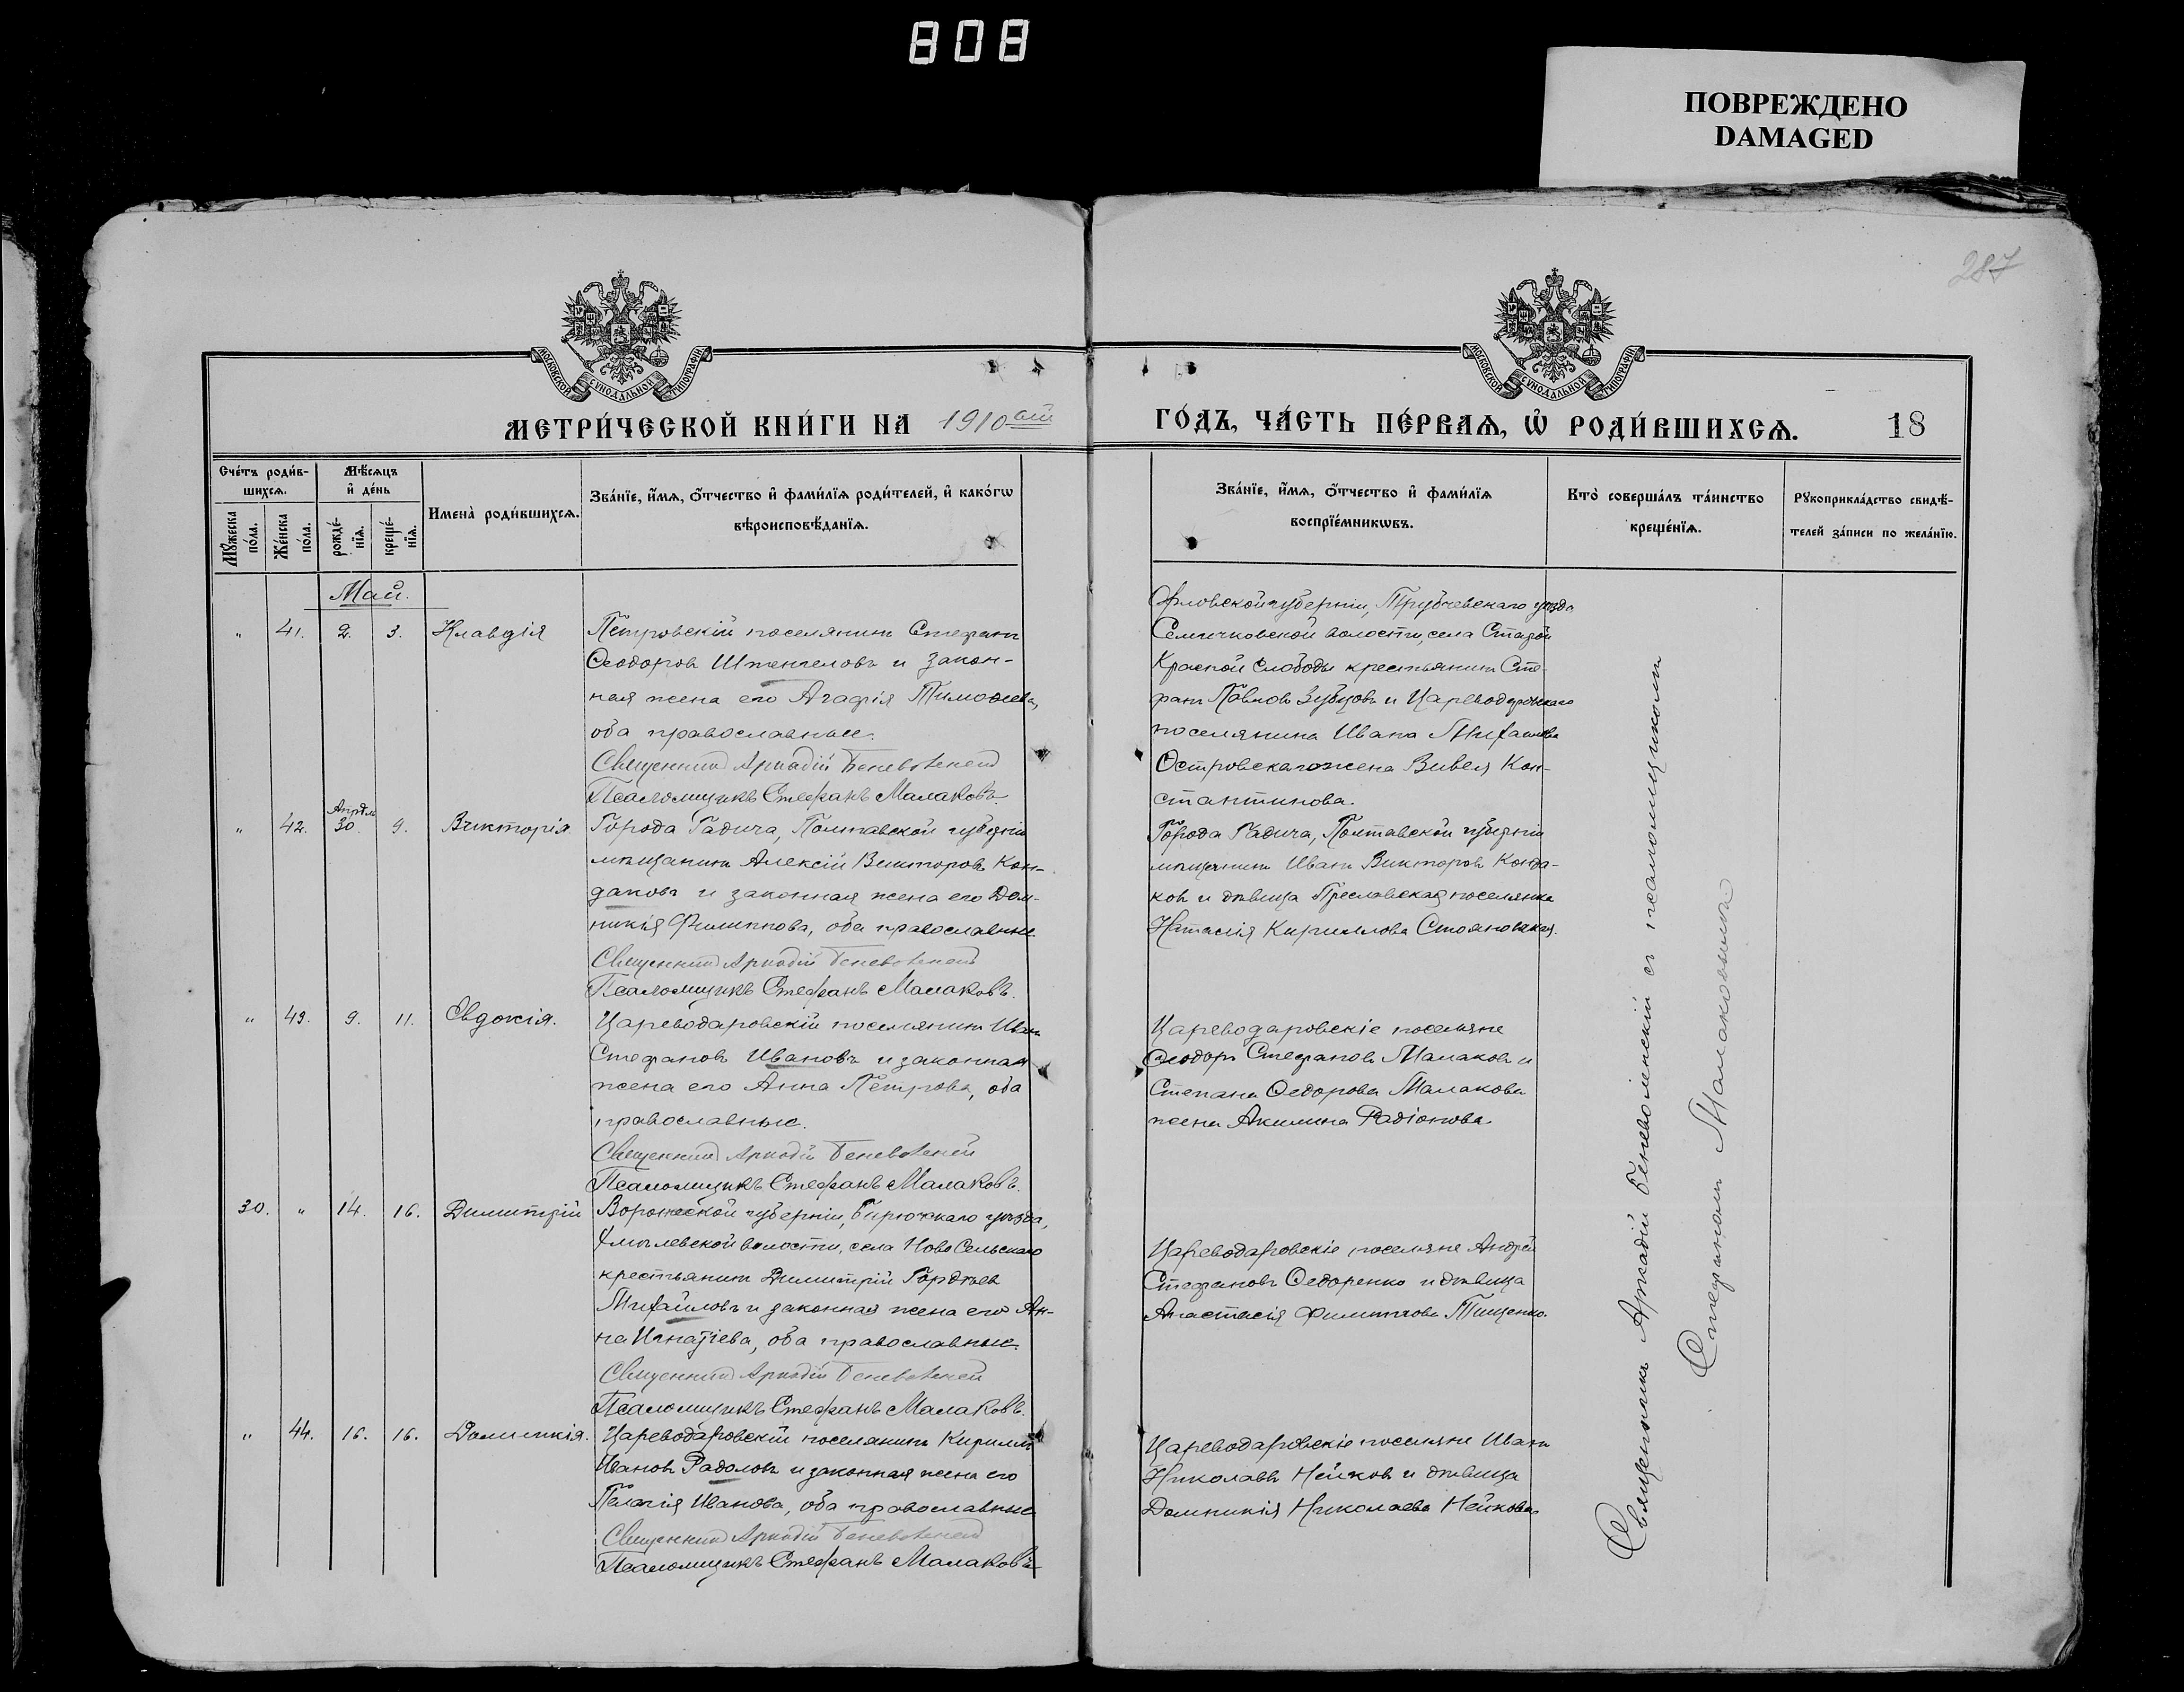 808
ПОВРЕЖДЕНО
DAMAGED
287
МОСКОВСКОЙ СѴНОДАЛЬНОЙ ТИПОГРАФІИ
МОСКОВСКОЙ СѴНОДАЛЬНОЙ ТИПОГРАФІИ
МЕТРИ́ЧЕСКОЙ КНИ́ГИ НА 1910ый
ГО́ДЪ, ЧА́СТЬ ПЕ́РВАѦ, Ѡ҆ РОДИ́ВШИХСѦ.
18
Сче́тъ роди́в-
шихсѧ.
Мѣ́сѧцъ
и҆ де́нь
Мꙋ́жеска
по́ла.
Же́нска
по́ла.
рожде́-
нїѧ.
креще́-
нїѧ.
Имена̀ роди́вшихсѧ.
Зва́нїе, и҆́мѧ, ѻ҆́тчество и҆ фами́лїѧ роди́телей, и҆ како́гѡ
вѣроисповѣ́данїѧ.
Зва́нїе, и҆́мѧ, ѻ҆́тчество и҆ фами́лїѧ
воспрїе́мникѡвъ.
Кто̀ соверша́лъ та́инство
креще́нїѧ.
Рꙋкоприкла́дство свидѣ́-
телей за́писи по жела́нїю.
Май.
" 41. 2. 3. Клавдія
Петровскій поселянинъ Стефанъ
Ѳеодоровъ Штенгеловъ и закон-
ная жена его Агафія Тимоѳеева,
оба православные.
Священникъ Аркадій Беневоленскій
Псаломщикъ Стефанъ Малаковъ.
Орловской губерніи, Трубчевскаго уѣзда
Семячковской волости, села Старой
Красной Слободы крестьянинъ Сте-
фанъ Павловъ Зубцовъ и Цареводаровскаго
поселянина Ивана Михайлова
Островскаго жена Вивея Кон-
стантинова.
" 42. Апрѣль 30. 9. Викторія
Города Гадяча, Полтавской губерніи
мѣщанинъ Алексій Викторовъ Кон-
даковъ и законная жена его Дом-
никія Филиппова, оба православные.
Священникъ Аркадій Беневоленскій
Псаломщикъ Стефанъ Малаковъ.
Города Гадяча, Полтавской губерніи
мѣщанинъ Иванъ Викторовъ Конда-
ковъ и дѣвица Преславская поселянка
Наталія Кириллова Стояновская.
" 43. 9. 11. Евдокія.
Цареводаровскій поселянинъ Иванъ
Стефановъ Ивановъ и законная
жена его Анна Петрова, оба
православные.
Священникъ Аркадій Беневоленскій
Псаломщикъ Стефанъ Малаковъ.
Цареводаровскіе поселяне
Ѳеодоръ Стефановъ Малаковъ и
Степана Ѳедорова Малакова
жена Акилина Радіонова.
30. " 14. 16. Димитрій
Воронежской губерніи, Бирючскаго уѣзда,
волости, села Ново Сельскаго
крестьянинъ Димитрій Гордѣевъ
Михайловъ и законная жена его Ан-
на Игнатіева, оба православные.
Священникъ Аркадій Беневоленскій
Псаломщикъ Стефанъ Малаковъ.
Цареводаровскіе поселяне Андрей
Стефановъ Ѳедоренко и дѣвица
Анастасія Филиппова Тищенко.
" 44. 16. 16. Домникія.
Цареводаровскій поселянинъ Кириллъ
Ивановъ Радоловъ и законная жена его
Пелагія Иванова, оба православные
Священникъ Аркадій Беневоленскій
Псаломщикъ Стефанъ Малаковъ
Цареводаровскіе поселяне Иванъ
Николаевъ Нейковъ и дѣвица
Домникія Николаева Нейкова
Священникъ Аркадій Беневоленскій съ псаломщикомъ
Стефаномъ Малаковымъ